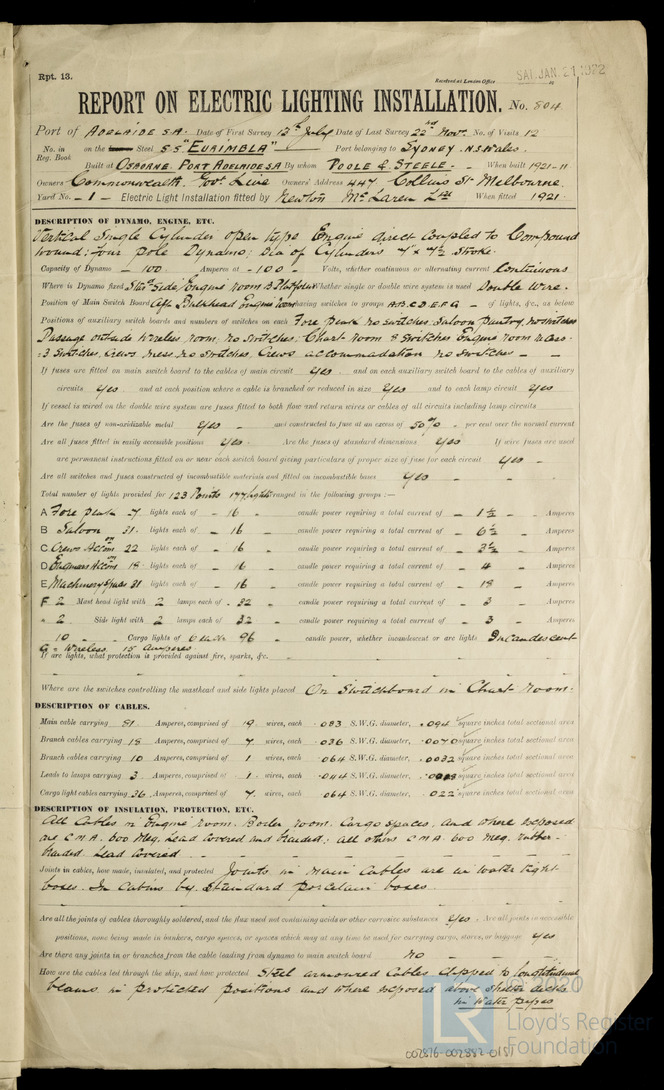 Rpt. 13.
Received at London Office
SAT. JAN. 21 1922
REPORT ON ELECTRIC LIGHTING INSTALLATION. No. 804
Port of ADELAIDE S.A. Date of First Survey 12th July Date of Last Survey 22nd Nov. No. of Visits 12
No. in Reg. Book on the Iron Steel S.S "EURIMBLA" Port belonging to SYDNEY. N.S.Wales.
Built at OSBORNE. PORT ADELAIDE SA By whom POOLE & STEELE - When built 1921-11
Owners Commonwealth. Govt. Line Owners' Address 447 Collins St Melbourne.
Yard No. - 1 - Electric Light Installation fitted by Newton McLaren Ltd When fitted 1921.
DESCRIPTION OF DYNAMO, ENGINE, ETC.
Vertical Single Cylinder open type Engine direct coupled to Compound
wound; four pole Dynamo; Dia of Cylinders
Stroke.
Capacity of Dynamo - 100 - Amperes at - 100 - Volts, whether continuous or alternating current Continuous
Where is Dynamo fixed Star'd Side Engine Room B. Platform Whether single or double wire system is used Double Wire.
Position of Main Switch Board Aft Bulkhead Engine Room having switches to groups A.B.C.D.E.F.G - of lights, &c., as below
Positions of auxiliary switch boards and numbers of switches on each Fore peak no switches. Saloon pantry, no switches
Passage outside wireless room, no switches. Chart Room 8 Switches Engine room
3 switches, Crews mess no switches, Crews accommodation no switches - -
If fuses are fitted on main switch board to the cables of main circuit Yes - and on each auxiliary switch board to the cables of auxiliary
circuits Yes - and at each position where a cable is branched or reduced in size Yes - and to each lamp circuit Yes
If vessel is wired on the double wire system are fuses fitted to both flow and return wires or cables of all circuits including lamp circuits
Are the fuses of non-oxidizable metal Yes - and constructed to fuse at an excess of 50% - per cent over the normal current
Are all fuses fitted in easily accessible positions Yes - Are the fuses of standard dimensions Yes If wire fuses are used
are permanent instructions fitted on or near each switch board giving particulars of proper size of fuse for each circuit Yes -
Are all switches and fuses constructed of incombustible materials and fitted on incombustible bases Yes -
Total number of lights provided for 123 Points 177 lights arranged in the following groups :—
A Fore peak 27 lights each of - 16 - candle power requiring a total current of - 1½ - Amperes
B Saloon 31. lights each of - 16 candle power requiring a total current of - 6½ - Amperes
C Crews Accom 22 lights each of - 16 candle power requiring a total current of - 3½ - Amperes
D Engineers Accom 18 lights each of - 16 candle power requiring a total current of - 4 - Amperes
E Machinery Spaces 31 lights each of - 16 candle power requiring a total current of - 18 - Amperes
F 2 Mast head light with 2 lamps each of . 32 candle power requiring a total current of - 3 - Amperes
" 2. Side light with 2 lamps each of 32 candle power requiring a total current of - 3 - Amperes
10 - Cargo lights of 6 each 96 - candle power, whether incandescent or arc lights Incandescent
G = Wireless. 15 Amperes
If arc lights, what protection is provided against fire, sparks, &c.
Where are the switches controlling the masthead and side lights placed On Switchboard in Chart Room.
DESCRIPTION OF CABLES.
Main cable carrying 81 Amperes, comprised of 19 wires, each .083 S.W.G. diameter, .094 square inches total sectional area
Branch cables carrying 18 Amperes, comprised of 7 wires, each .036 S.W.G. diameter, .0070 square inches total sectional area
Branch cables carrying 10 Amperes, comprised of 1 wires, each .064 S.W.G. diameter, .0032 square inches total sectional area
Leads to lamps carrying 3 Amperes, comprised of 1 wires, each .044 S.W.G. diameter, square inches total sectional area
Cargo light cables carrying 36 Amperes, comprised of 7 wires, each .064 S.W.G. diameter, .022 square inches total sectional area
DESCRIPTION OF INSULATION, PROTECTION, ETC.
All Cables in Engine Room. Boiler room. Cargo spaces, and where exposed
are C.M.A. 600 Meg. Lead Covered and braided; all others C.M.A. 600 Meg. rubber-
braided. Lead Covered.
Joints in cables, how made, insulated, and protected Joints in main Cables are in water tight
boxes. In Cabins by Standard porcelain boxes.
Are all the joints of cables thoroughly soldered, and the flux used not containing acids or other corrosive substances Yes - Are all joints in accessible
positions, none being made in bunkers, cargo spaces, or spaces which may at any time be used for carrying cargo, stores, or baggage Yes
Are there any joints in or branches from the cable leading from dynamo to main switch board No -
How are the cables led through the ship, and how protected Steel armoured Cables clipped to longitudinal
beams in protected positions and where exposed above shelter decks
in Water pipes
© 2020
LR Lloyd's Register
Foundation
002876-002882-0151